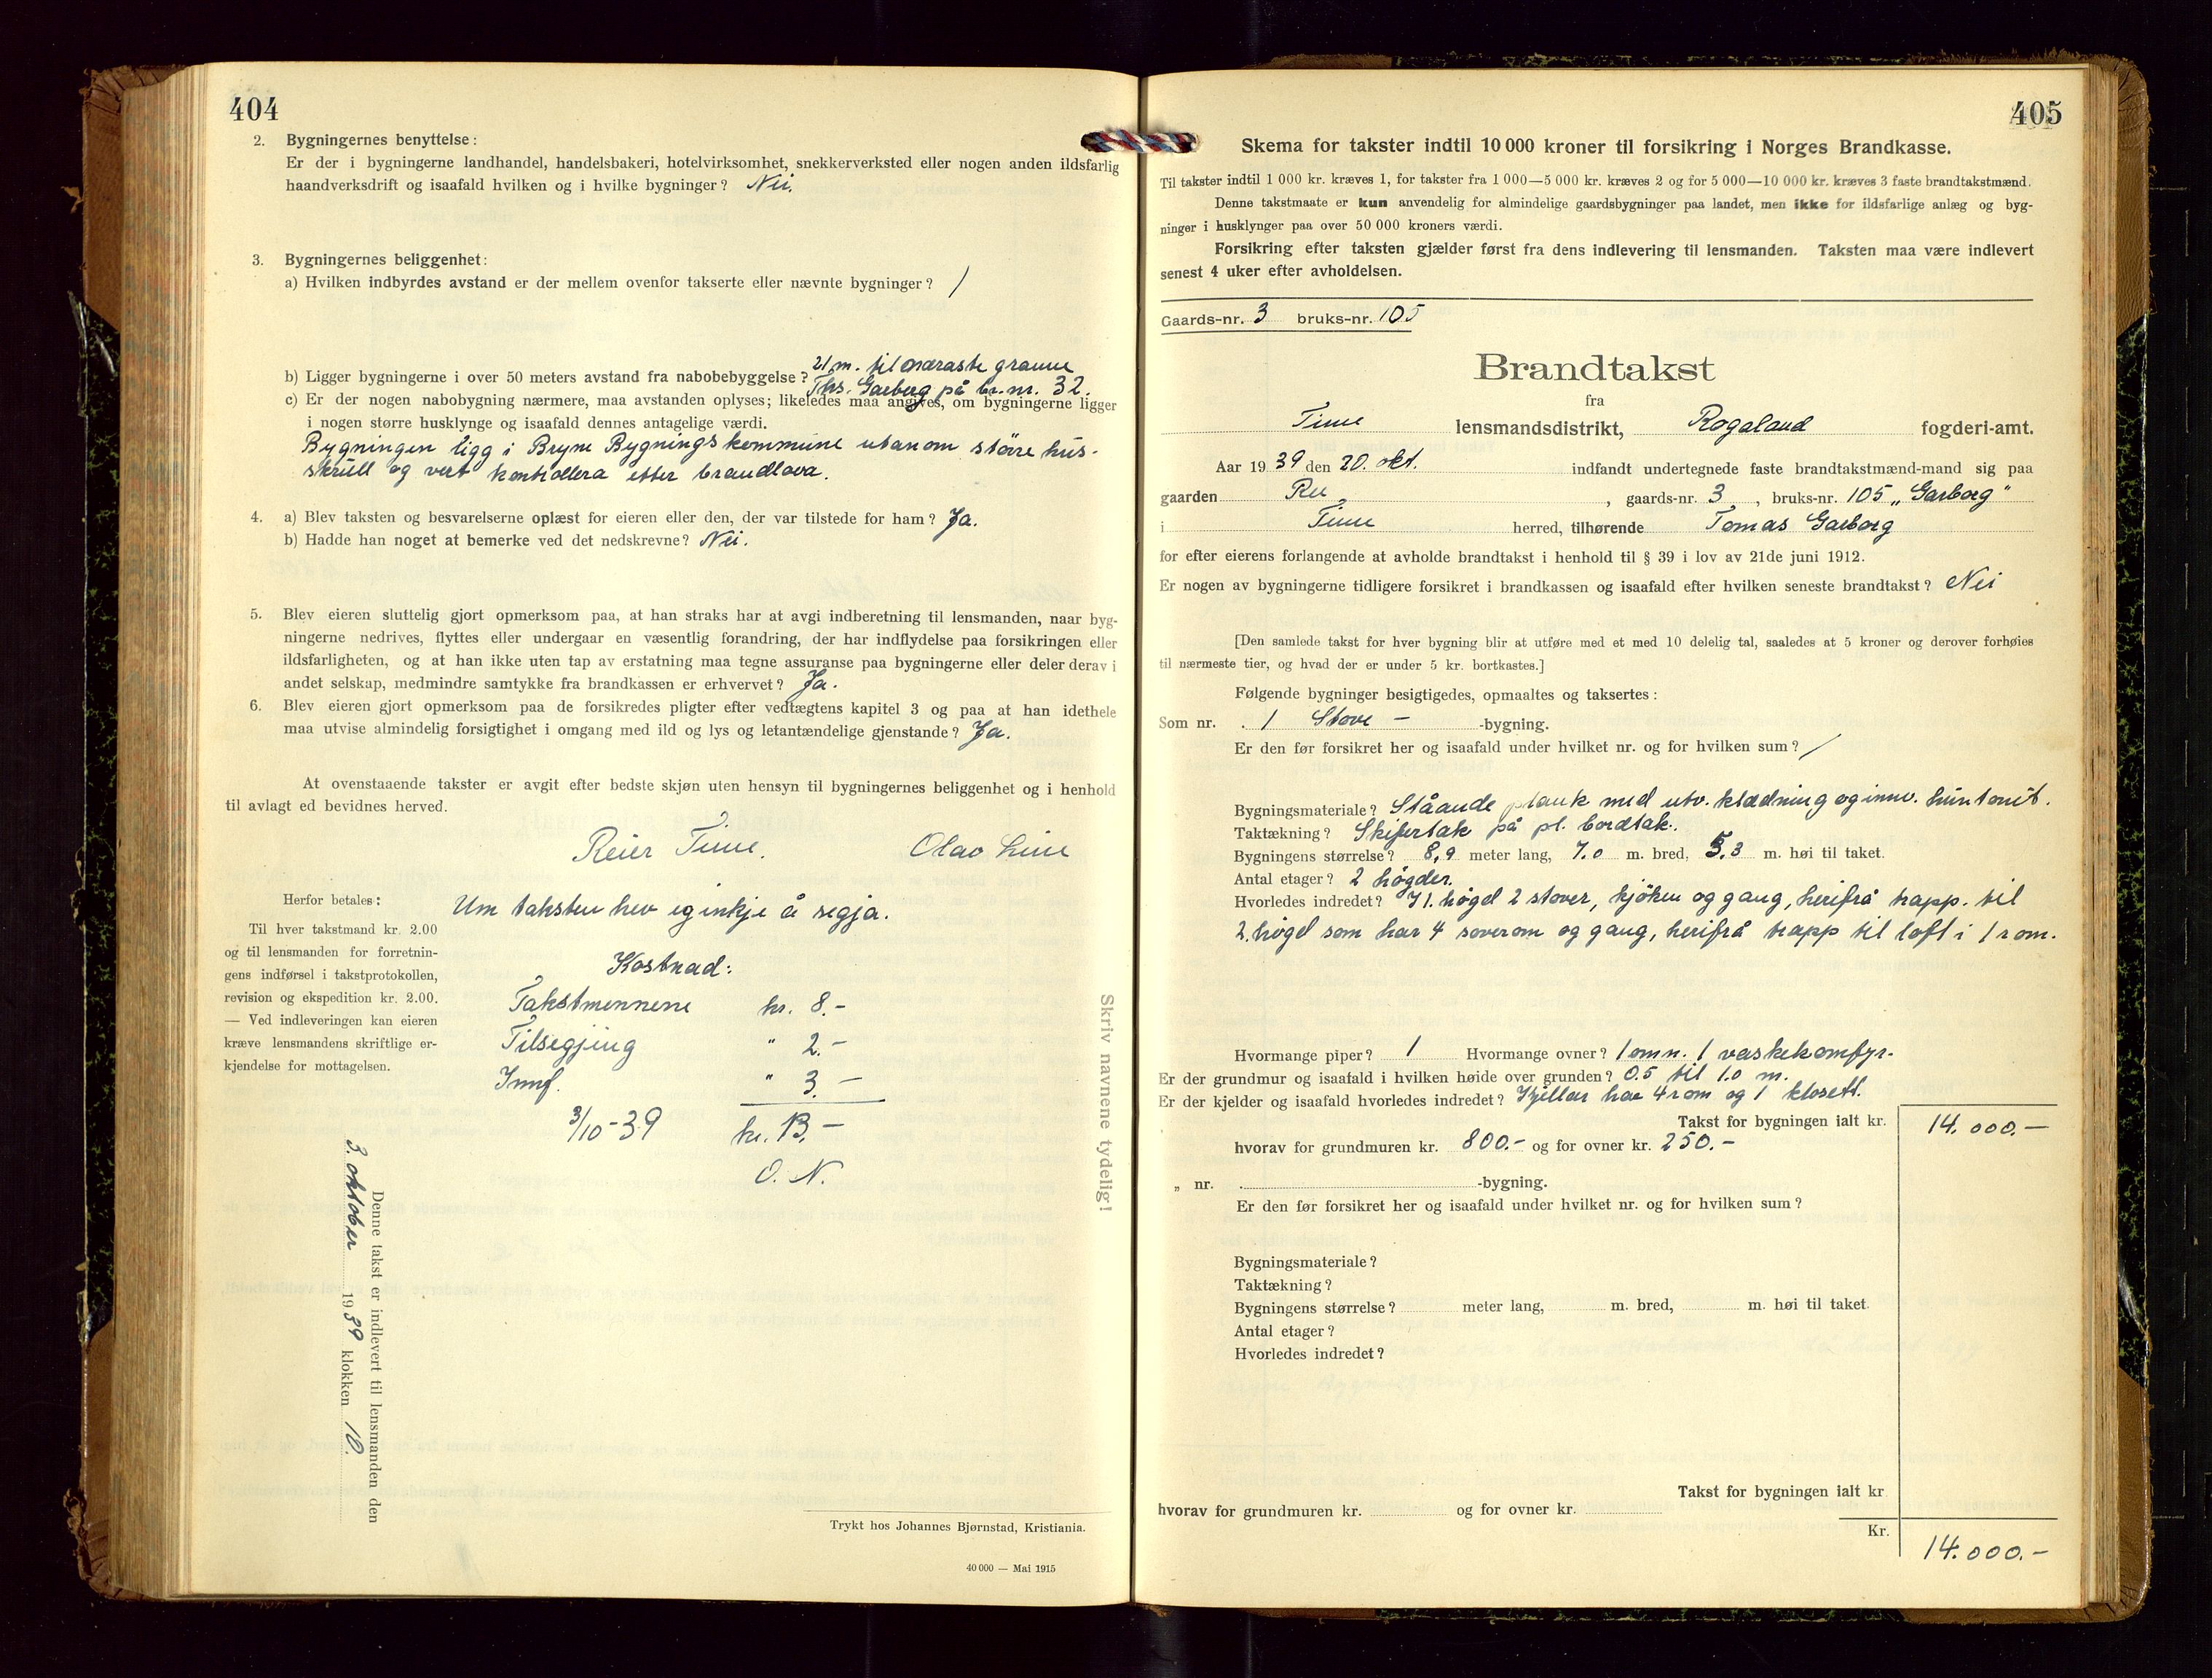 404
2. Bygningernes benyttelse:
Er der i bygningerne landhandel, handelsbakeri, hotelvirksomhet, snekkerverksted eller nogen anden ildsfarlig
haandverksdrift og isaafald hvilken og i hvilke bygninger? Nei.
3. Bygningernes beliggenhet:
a) Hvilken indbyrdes avstand er der mellem ovenfor takserte eller nævnte bygninger? /
21 m. til næraste granne
b) Ligger bygningerne i over 50 meters avstand fra nabobebyggelse? Ths. Garborg på br.nr. 32.
c) Er der nogen nabobygning nærmere, maa avstanden oplyses; likeledes maa angives, om bygningerne ligger
i nogen større husklynge og isaafald dennes antagelige værdi.
Bygningen ligg i Bryne Bygningskommune utanom större hus-
skrull og vert kontrollera etter brandlova.
4. a) Blev taksten og besvarelserne oplæst for eieren eller den, der var tilstede for ham? Ja.
b) Hadde han noget at bemerke ved det nedskrevne? Nei.
5. Blev eieren sluttelig gjort opmerksom paa, at han straks har at avgi indberetning til lensmanden, naar byg-
ningerne nedrives, flyttes eller undergaar en væsentlig forandring, der har indflydelse paa forsikringen eller
ildsfarligheten, og at han ikke uten tap av erstatning maa tegne assuranse paa bygningerne eller deler derav i
andet selskap, medmindre samtykke fra brandkassen er erhvervet? Ja.
6. Blev eieren gjort opmerksom paa de forsikredes pligter efter vedtægtens kapitel 3 og paa at han idethele
maa utvise almindelig forsigtighet i omgang med ild og lys og letantændelige gjenstande? Ja.
At ovenstaaende takster er avgit efter bedste skjøn uten hensyn til bygningernes beliggenhet og i henhold
til avlagt ed bevidnes herved.
Reier Time. Olav Lime
Herfor betales:
Til hver takstmand kr. 2.00
og til lensmanden for forretnin-
gens indførsel i takstprotokollen,
revision og ekspedition kr. 2.00.
— Ved indleveringen kan eieren
kræve lensmandens skriftlige er-
kjendelse for mottagelsen.
Um taksten hev eg inkje å segja.
Kostnad:
Takstmennene kr. 8.-
Tilsegjing " 2.-
Innf. " 3.-
3/10-39 kr. 13.-
O. N.
Denne takst er indlevert til lensmanden den
3. oktober 1939 klokken 10.
Skriv navnene tydelig!
Trykt hos Johannes Bjørnstad, Kristiania.
40 000 — Mai 1915
405
Skema for takster indtil 10 000 kroner til forsikring i Norges Brandkasse.
Til takster indtil 1 000 kr. kræves 1, for takster fra 1 000—5 000 kr. kræves 2 og for 5 000—10 000 kr. kræves 3 faste brandtakstmænd.
Denne takstmaate er kun anvendelig for almindelige gaardsbygninger paa landet, men ikke for ildsfarlige anlæg og byg-
ninger i husklynger paa over 50 000 kroners værdi.
Forsikring efter taksten gjælder først fra dens indlevering til lensmanden. Taksten maa være indlevert
senest 4 uker efter avholdelsen.
Gaards-nr. 3 bruks-nr. 105
Brandtakst
fra
Time lensmandsdistrikt, Rogaland fogderi-amt.
Aar 1939 den 20. okt. indfandt undertegnede faste brandtakstmænd-mand sig paa
gaarden Re, gaards-nr. 3, bruks-nr. 105 „Garborg"
i Time herred, tilhørende Tomas Garborg
for efter eierens forlangende at avholde brandtakst i henhold til § 39 i lov av 21de juni 1912.
Er nogen av bygningerne tidligere forsikret i brandkassen og isaafald efter hvilken seneste brandtakst? Nei
[Den samlede takst for hver bygning blir at utføre med et med 10 delelig tal, saaledes at 5 kroner og derover forhøies
til nærmeste tier, og hvad der er under 5 kr. bortkastes.]
Følgende bygninger besigtigedes, opmaaltes og taksertes:
Som nr. 1 Stove - -bygning.
Er den før forsikret her og isaafald under hvilket nr. og for hvilken sum? /
Bygningsmateriale? Ståande plank med utv. klædning og innv. huntonit.
Taktækning? Skifertak på pl. bordtak.
Bygningens størrelse? 8,9 meter lang, 7.0 m. bred, 5.3 m. høi til taket.
Antal etager? 2 högder.
Hvorledes indredet? I 1. högd 2 stover, kjöken og gang, herifrå trapp. til
2. högd som har 4 soverom og gang, herifrå trapp til loft i 1 rom.
Hvormange piper? 1 Hvormange ovner? 1 omn. 1 vaskekomfyr.
Er der grundmur og isaafald i hvilken høide over grunden? 0.5 til 1.0 m.
Er der kjelder og isaafald hvorledes indredet? Kjellar har 4 rom og 1 klosett.
Takst for bygningen ialt kr. 14.000.-
hvorav for grundmuren kr. 800.- og for ovner kr. 250.-
„ nr. -bygning.
Er den før forsikret her og isaafald under hvilket nr. og for hvilken sum?
Bygningsmateriale?
Taktækning?
Bygningens størrelse? meter lang, m. bred, m. høi til taket.
Antal etager?
Hvorledes indredet?
Takst for bygningen ialt kr
hvorav for grundmuren kr. og for ovner kr.
Kr. 14.000.-